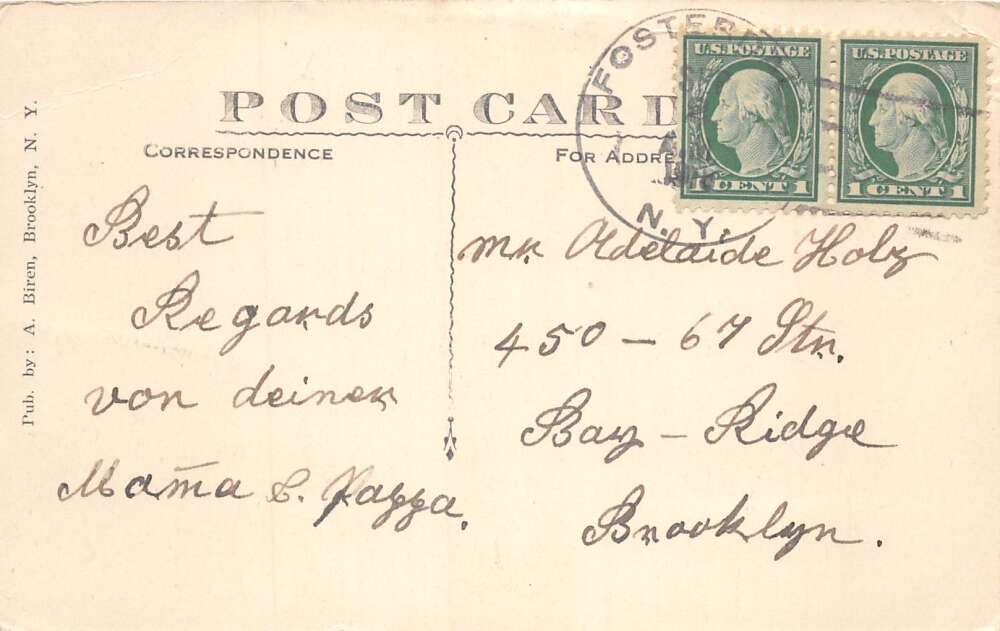 POST CARD
CORRESPONDENCE
FOR ADDRE
Pub. by: A. Biren, Brooklyn, N. Y.
FOSTER
N. Y.
U.S. POSTAGE
1 CENT 1
U.S. POSTAGE
1 CENT 1
Best
Regards
von deiner
Mam̄a &. Pappa.
Mr. Adelaide Holz
450 – 67 Str.
Bay – Ridge
Brooklyn.